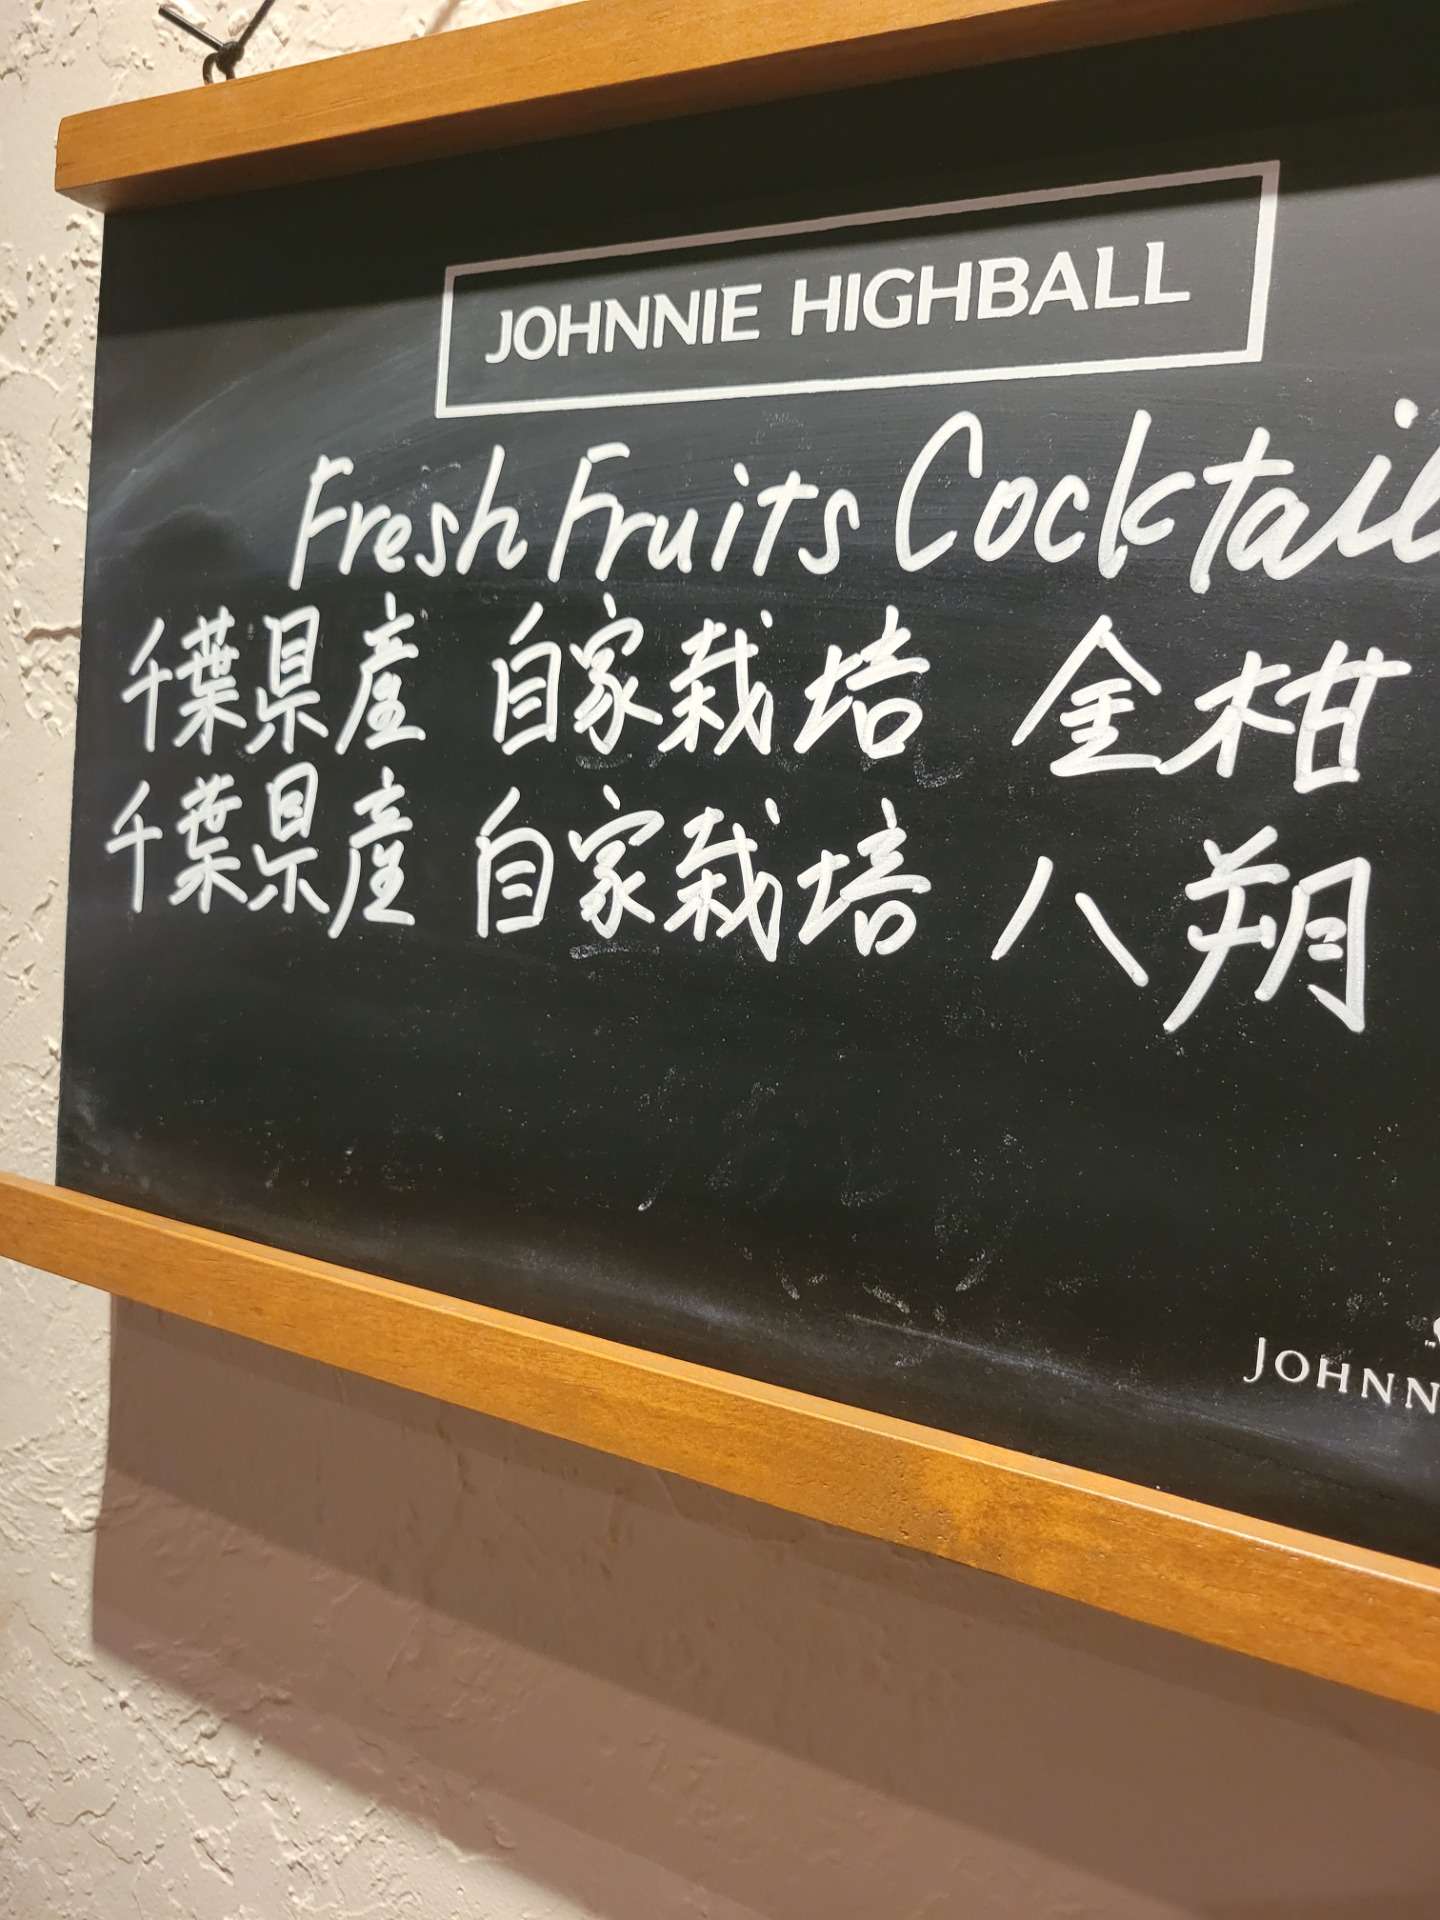 JOHNNIE HIGHBALL
Fresh Fruits Cocktail
千葉県産 自家栽培 金柑
千葉県産 自家栽培 八朔
JOHNN